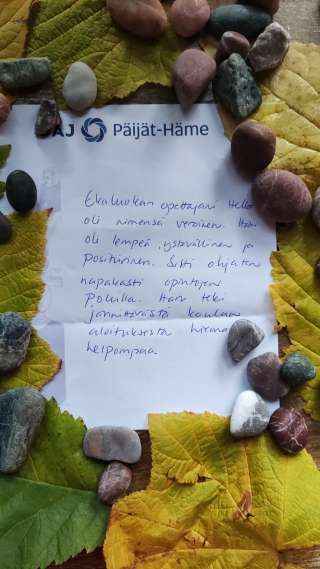 AJ Päijät-Häme
Ekaluokan opettajan Hell
oli nimensä veroinen. Hän
oli lempeä, ystävällinen ja
positiivinen. Silti ohjaten
napakasti opintojen
polulla. Hän teki
jännittävästä koulun
aloituksesta hieman
helpompaa.